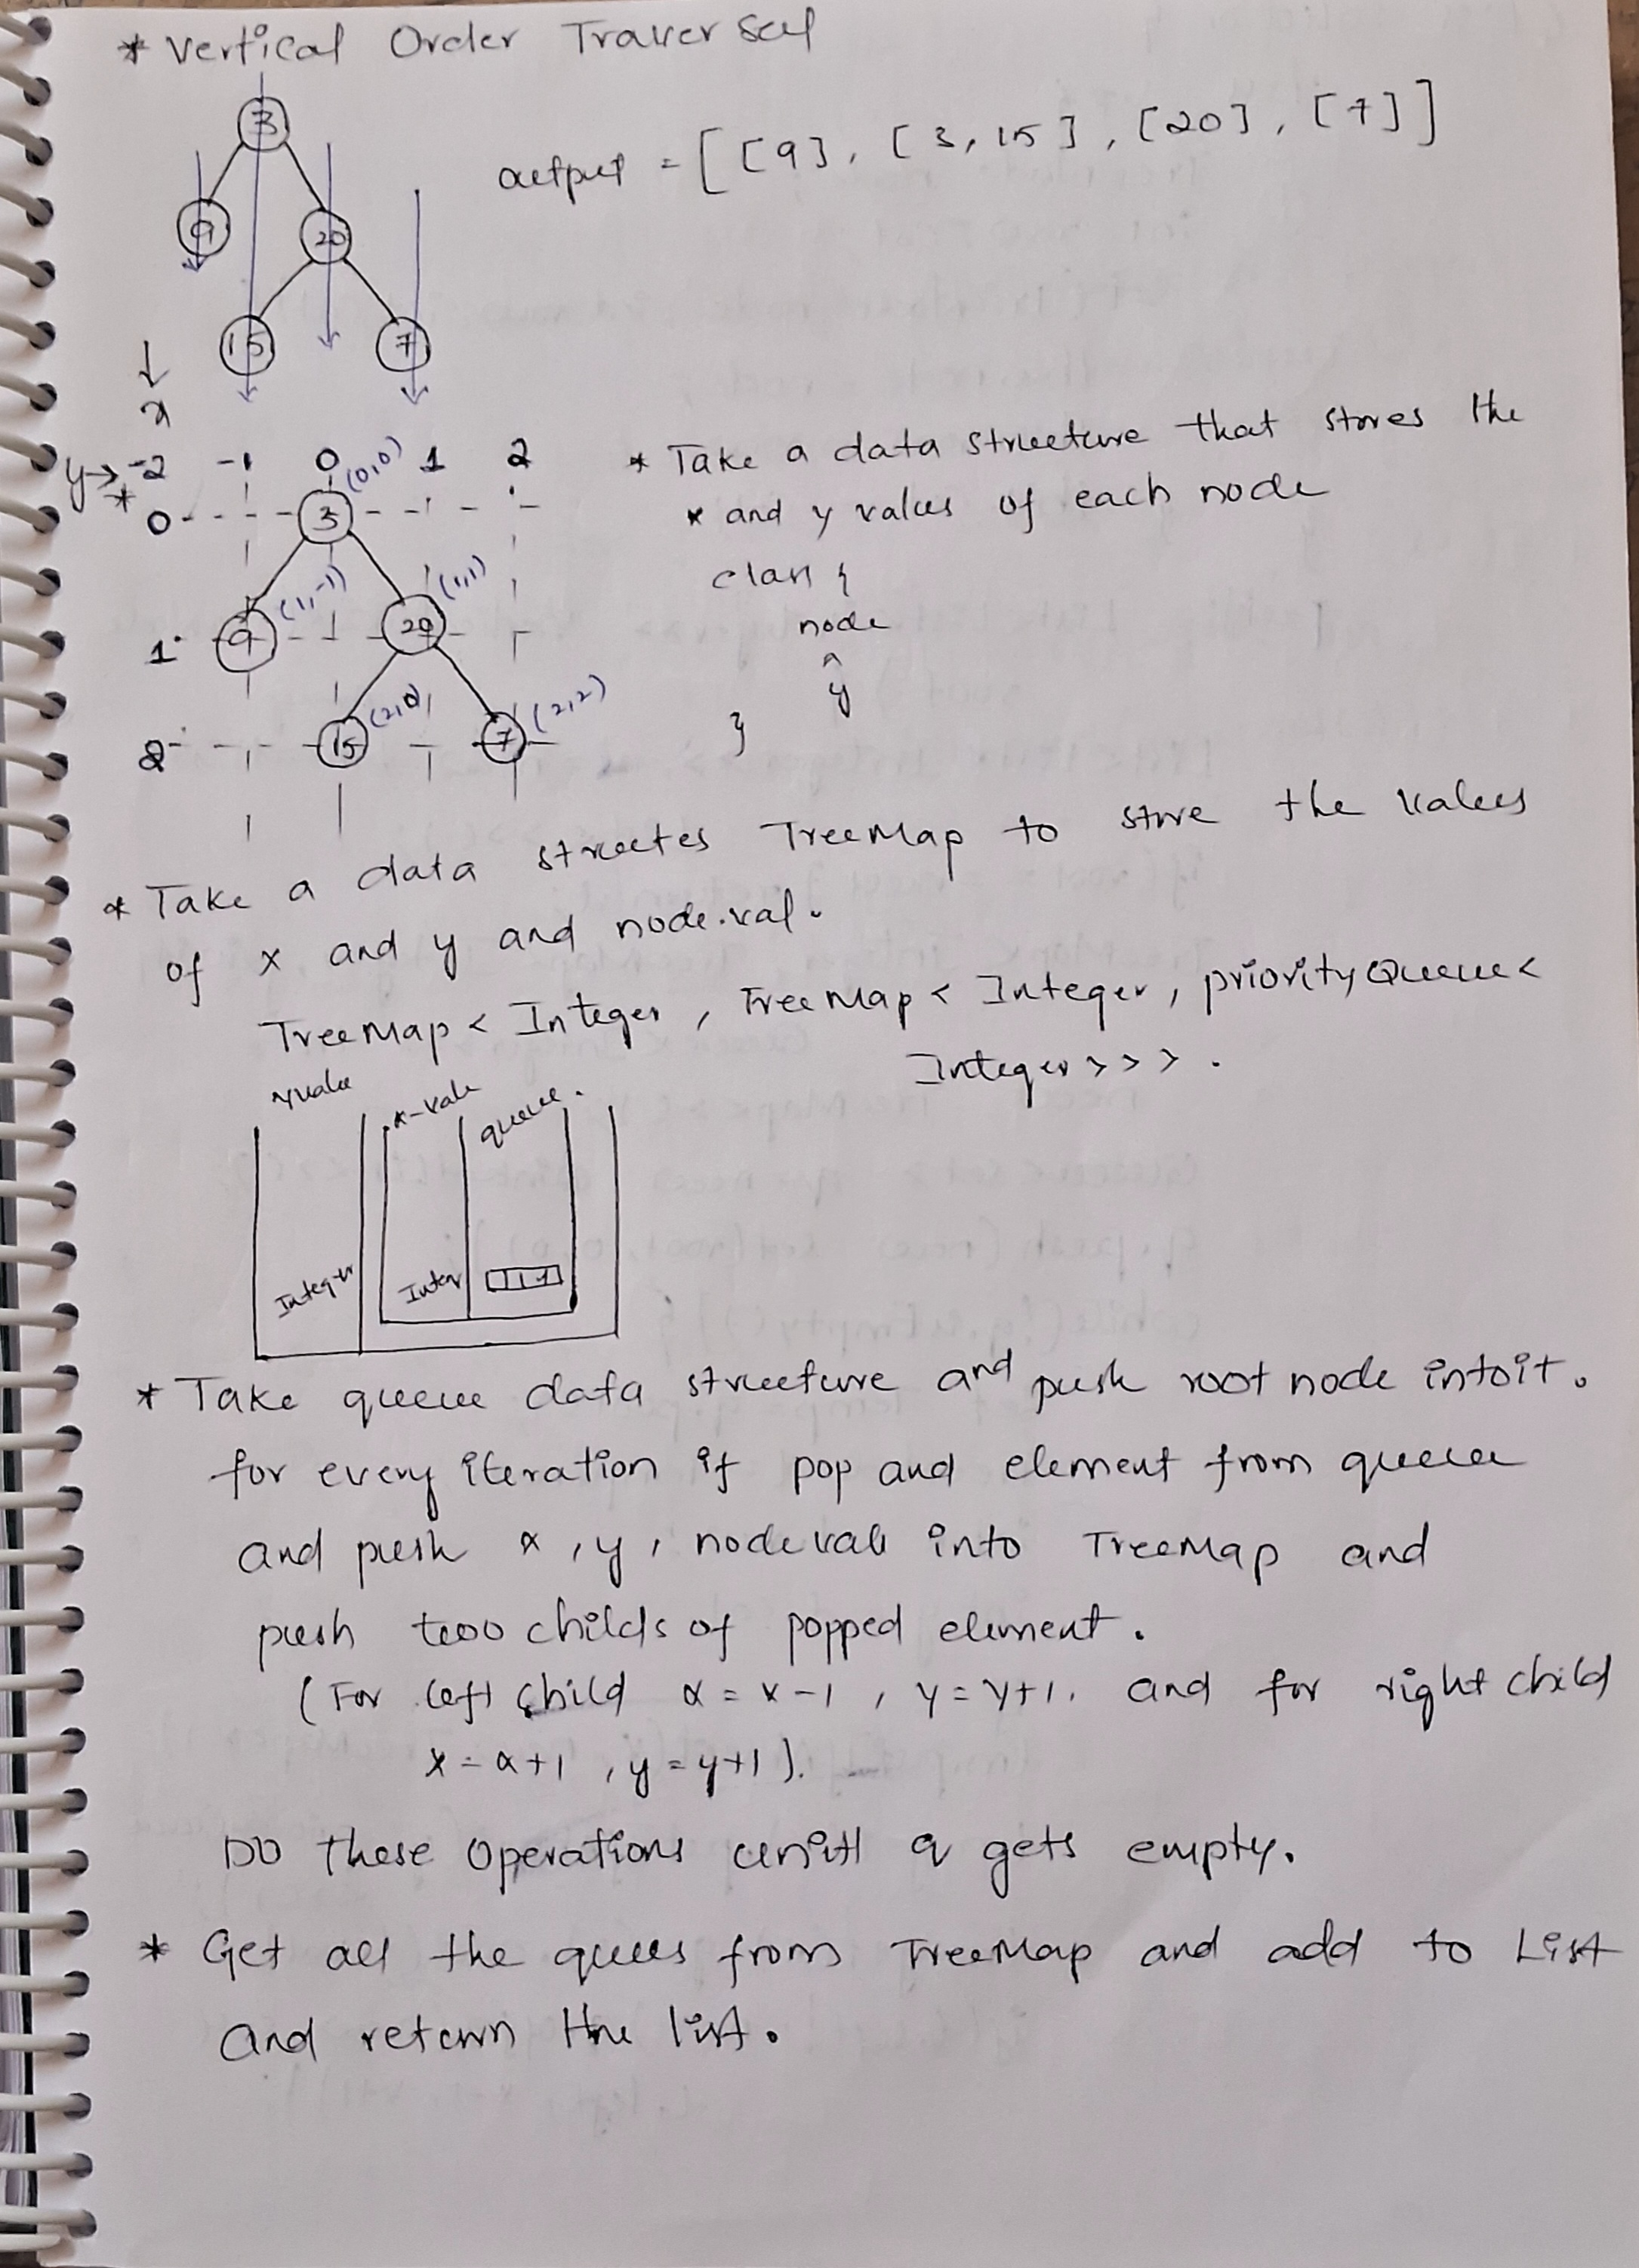 * Vertical Order Traversal
3
output = [[9], [3,15], [20], [7]]
9 20
15 7
↓
x
y→ -2 -1 0 1 2
* Take a data structure that stores the
x and y values of each node
0 3 (0,0)
class {
node
x
y
}
1 9 (1,-1) 20 (1,1)
2 15 (2,0) 7 (2,2)
* Take a data structes TreeMap to store the values
of x and y and node.val.
TreeMap < Integer, TreeMap < Integer, priorityQueue <
Integer>>> .
Yvalue x-vale queue.
Integer Inter
* Take queue data structure and push root node into it.
for every iteration if pop and element from queue
and push x, y, node val into TreeMap and
push two childs of popped element.
(For left child x = x-1, y = y+1, and for right child
x = x+1, y = y+1).
DO these operations until q gets empty.
* Get all the queues from TreeMap and add to List
and return the list.